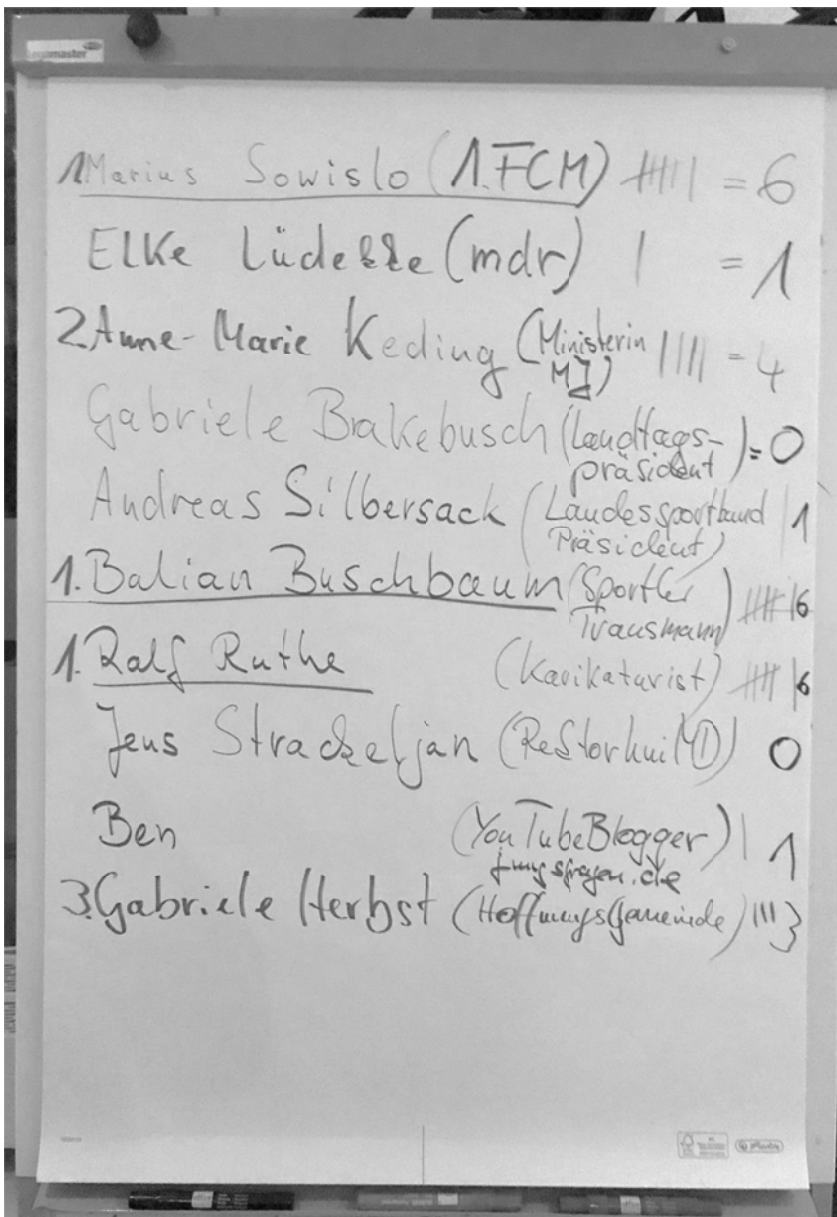 1 Marius Sowislo (1.FCM) = 6
Elke Lüdekke (mdr) | = 1
2. Anne-Marie Keding (Ministerin |||| = 4
MJ)
Gabriele Brakebusch (Landtags- ) = 0
präsident
Andreas Silbersack (Landessportbund | 1
Präsident)
1. Balian Buschbaum (Sportler ) 6
Transmann
1. Ralf Ruthe (Karikaturist) 6
Jens Strackeljan 0
Ben (YouTubeBlogger) | 1
jungsfragen.de
3. Gabriele Herbst (Hoffnungsgemeinde) ||| 3